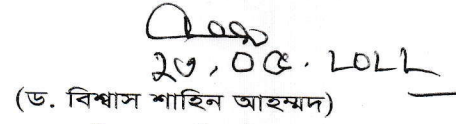 ২৩.০৫.২০২২
(ড. বিশ্বাস শাহিন আহম্মদ)